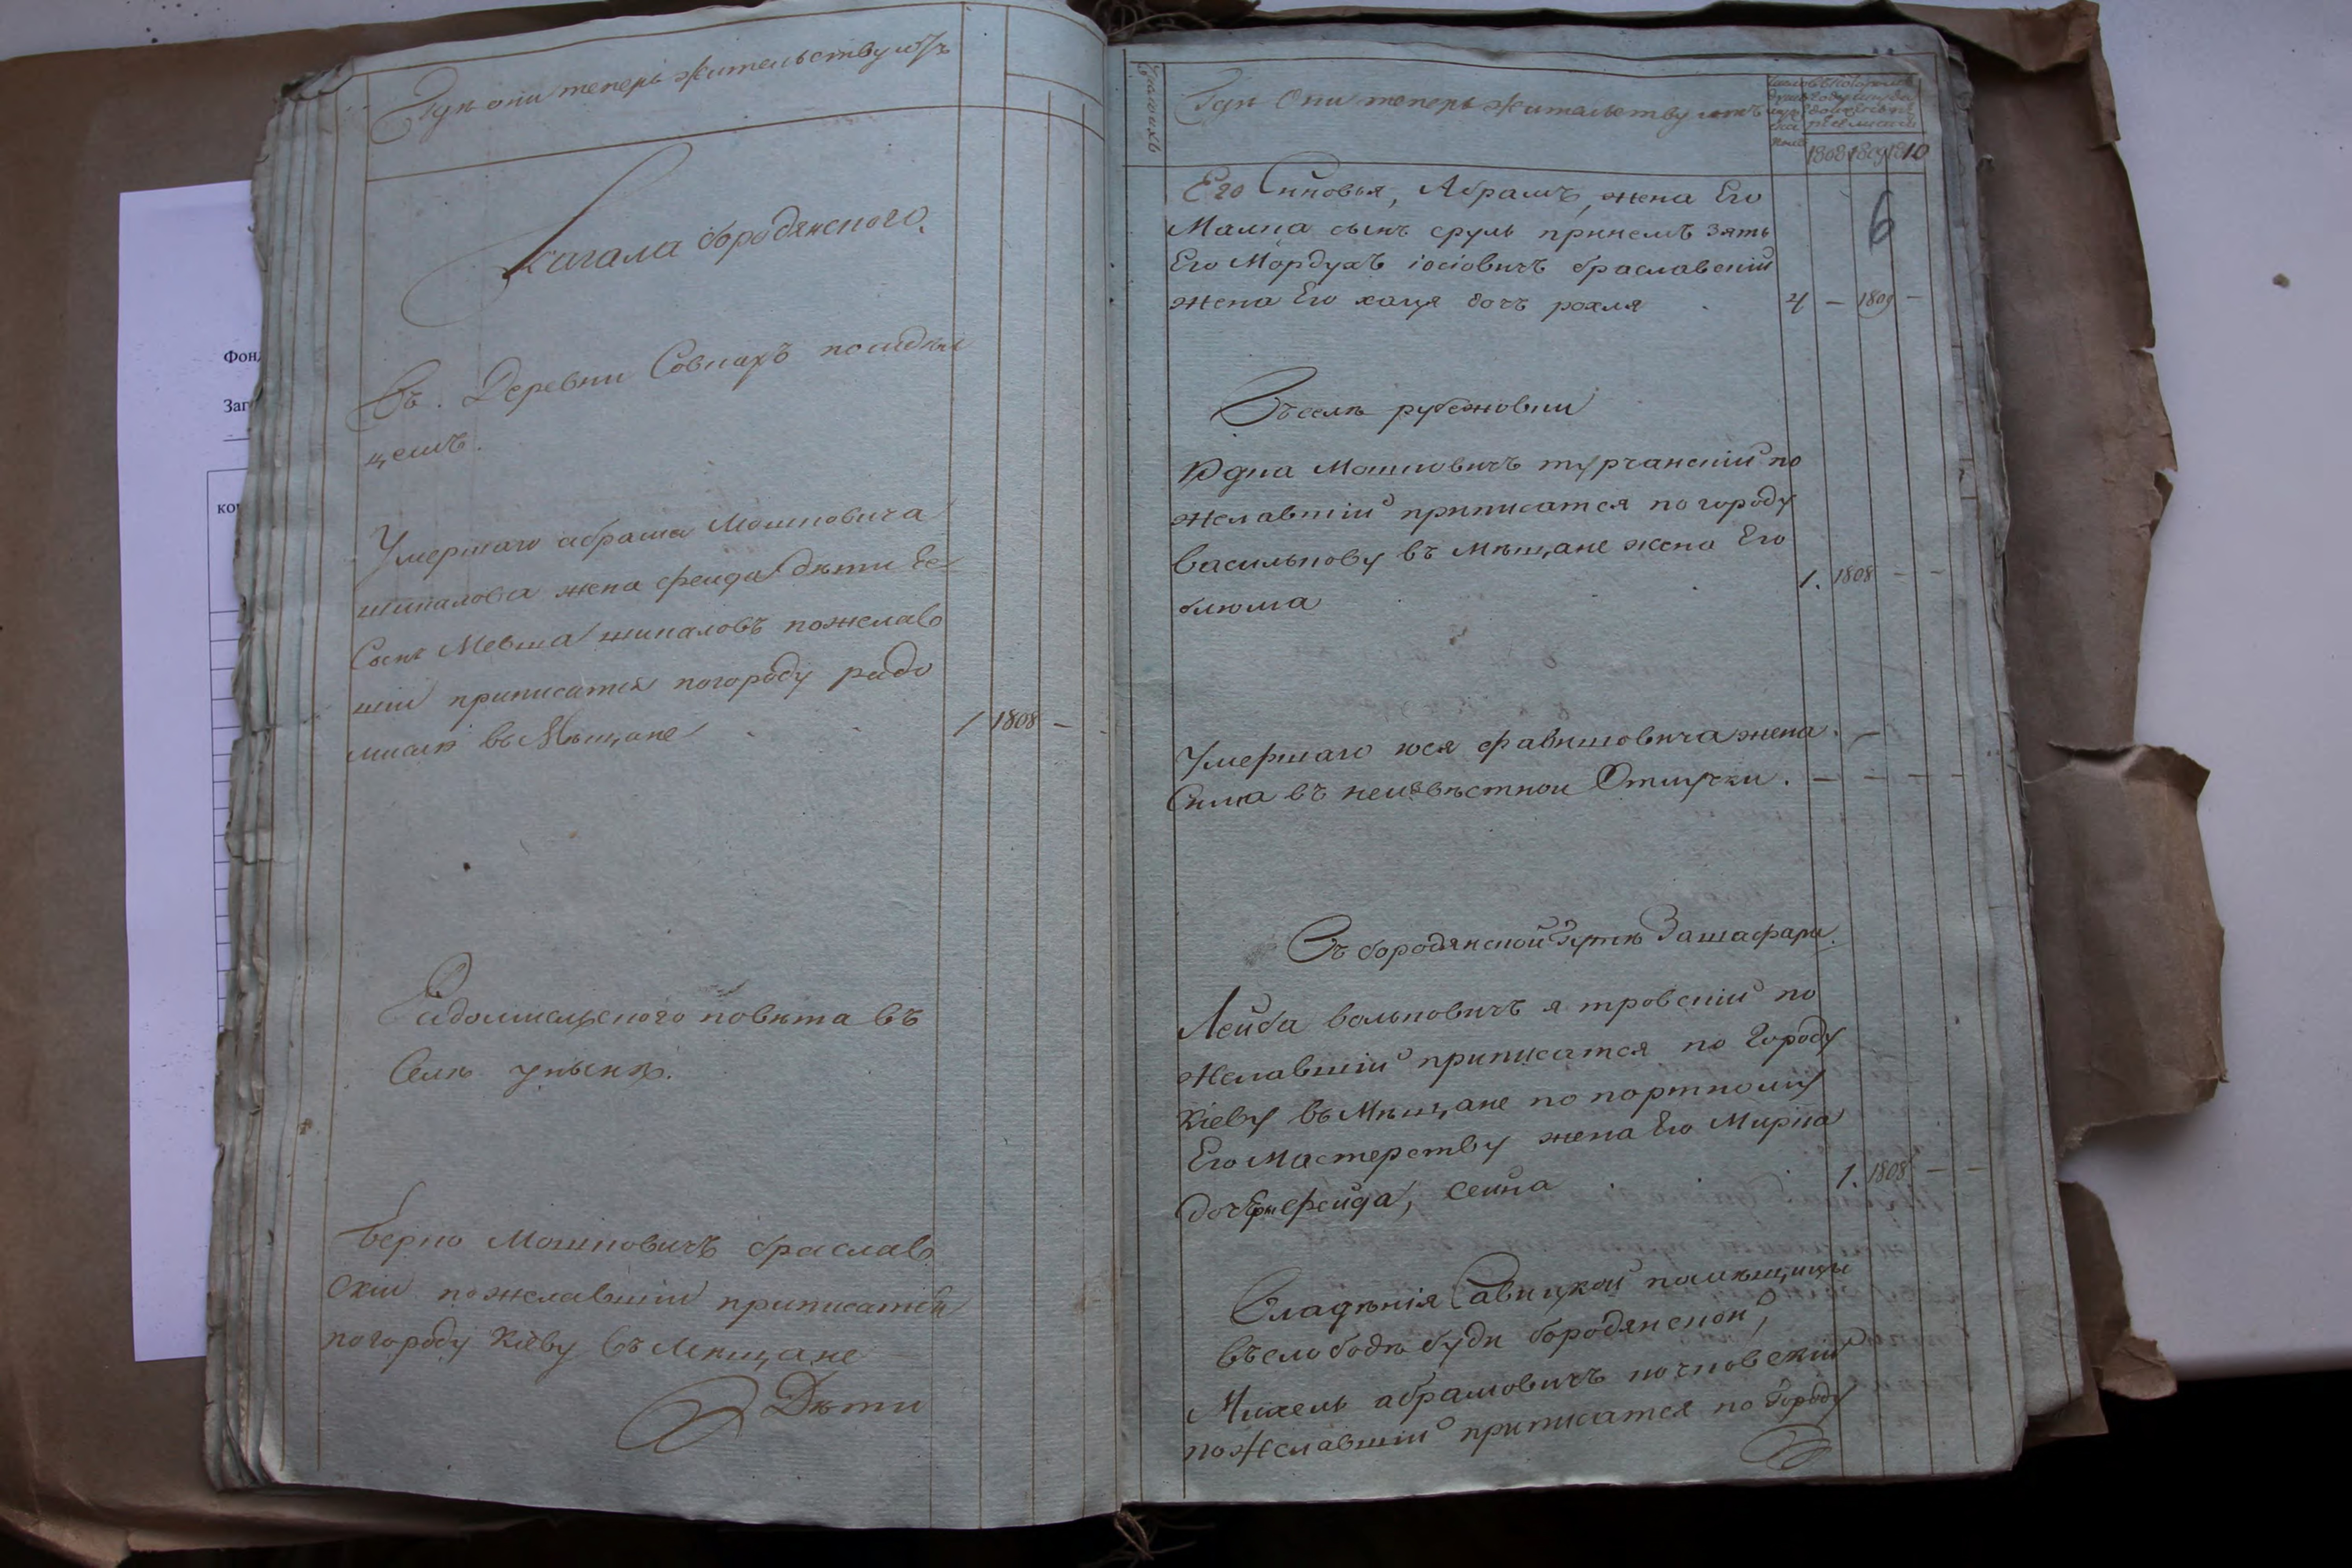 Где они теперь жительствуютъ
Кагала бородянского.
Въ Деревни Совкахъ
цемъ.
Умершаго абрама Мошковича
шикалова жена фейда дѣти Ее
Сынъ Мевша шикаловъ пожелав
шии приписатся погороду радо
мислю въ Мѣщане
1 1808 -
Радомислского повѣта въ
Селѣ
берко Мошковичъ браслав
скіи пожелавшіи приписатся
погороду Кіеву въ Мѣщане
Дѣти
Фон
Заг
ко
Где Они теперь жительствуютъ
1808 1809 1810
6
Его Синовья, Абрамъ, жена Его
Малка сынъ сруль принемъ зять
Его Мордухъ іосіовичъ браславскій
жена Его хаця дочь рохля
4 - 1809 -
Въ селѣ рубежовки
Юдка Мошковичъ турчанскій по
желавшій приписатся по городу
василькову въ мѣщане жена Его
блюма
1. 1808 - -
Умершаго іося фавишовича жена
Симка въ неизвѣстной Отлучки. - - - -
Въ бородянской Гутѣ
Лейба вольковичъ ятровскій по
желавшій приписатся по Городу
Кіеву въ Мѣщане по портному
Его Мастерству жена Его Мирка
дочери фейда, сейна
1. 1808 - -
Владѣнія Савицкой помѣщицы
въ слободѣ буди бородянской,
Михель абрамовичъ
пожелавшій приписатся по Городу